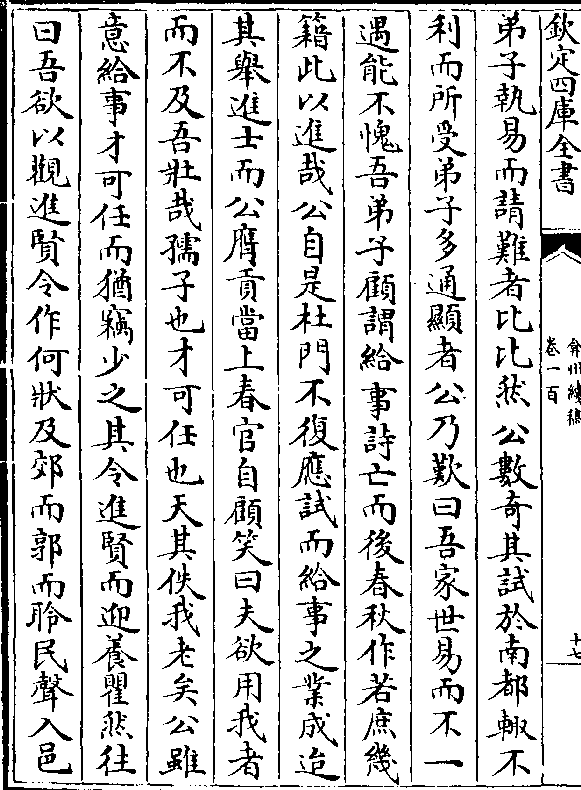 欽定四庫全書
弇州續稿
卷一百
十七
弟子執易而請難者比比然公數奇其試於南都輙不
利而所受弟子多通顯者公乃歎曰吾家世易而不一
遇能不愧吾弟子顧謂給事詩亡而後春秋作若庶幾
籍此以進哉公自是杜門不復應試而給事之業成迨
其舉進士而公膺貢當上春官自顧笑曰夫欲用我者
而不及吾壯哉孺子也才可任也天其佚我老矣公雖
意給事才可任而猶竊少之其令進賢而迎養瞿然往
曰吾欲以觀進賢令作何狀及郊而郭而聆民聲入邑